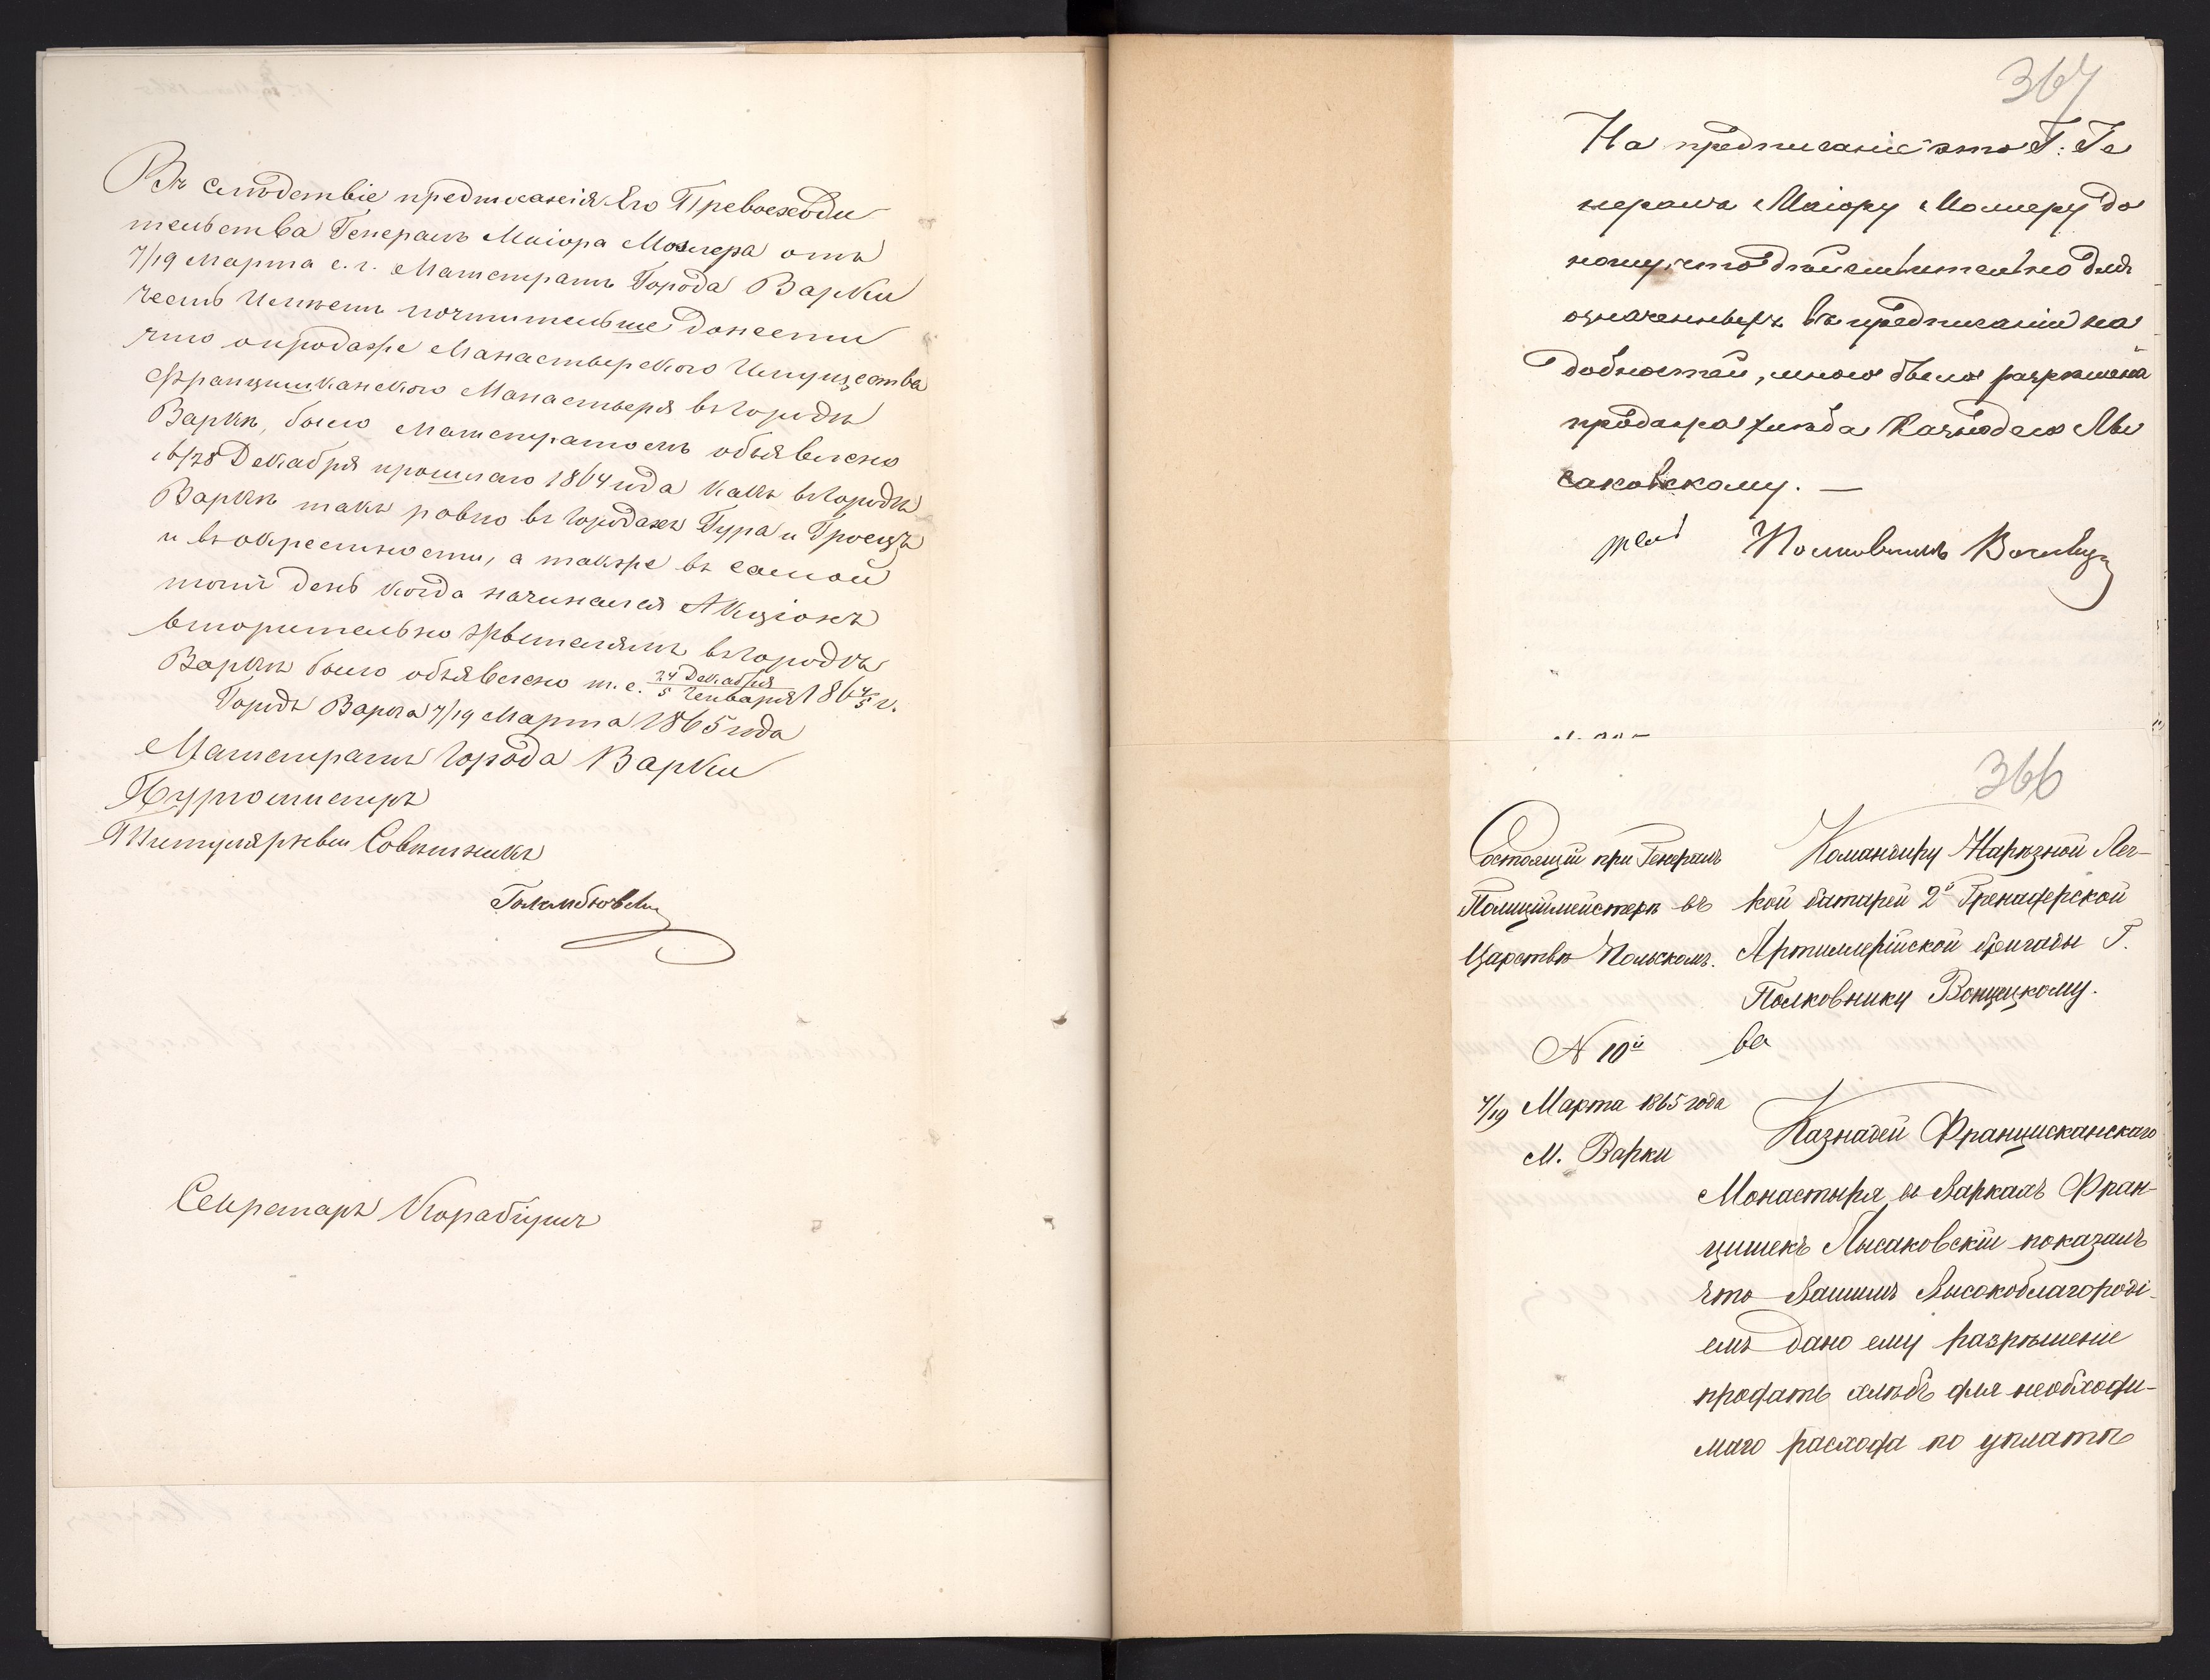 Въ слѣдствіе предписанія Его Превосходи
тельства Генералъ Маіора Моллера отъ
7/19 Марта с. г. Магистратъ Города Варки
честь Имѣетъ почтительше донести
что о продаже Манастырского Имущества
Францишканского Манастыря въ городѣ
Варкѣ, было Магистратомъ объявлено
16/28 Декабря прошлаго 1864 года какъ въ городѣ
Варкѣ такъ ровно въ городахъ Гура и Гроецъ
и въ окрестности, а также въ самой
тотй день когда начинался Акціонъ
вторительно жителямъ въ городѣ
Варкѣ было объявлено т. е. 24 Декабря / 5 Генваря 186 4/5 г.
Городъ Варка 7/19 Марта 1865 года
Магистратъ города Варки
Бургомистръ
Титулярный Совѣтникъ
Секретарь
367
На предписаніе это Г: Ге
нералъ Маіору Моллеру до
ношу, что дѣйствительно для
означенныхъ въ предписаніи на
добностей, мною было разрѣшена
продажа хлѣба Казнодею Лы
саковскому. —
Полковникъ
366
Состоящій при Генералъ
Полиціймейстерѣ въ
Царствѣ Польскомъ.
N 10й
7/19 Марта 1865 года
М. Варки
Командиру Нарѣзной Лег-
кой батареи 2й Гренадерской
Артиллерійской бригады Г.
Полковнику Вонцецкому.
Казнадей Францисканскаго
Монастыря въ Варкахъ Фран-
цишекъ Лысаковскій показалъ
что Вашимъ Высокоблагороді-
емъ дано ему разрѣшеніе
продать хлѣбъ для необходи-
маго расхода по уплатѣ